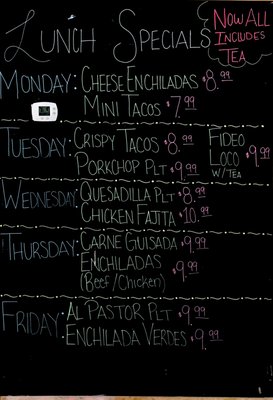 Lunch Specials
Now All
Includes
Tea
Monday: Cheese Enchiladas $8.99
Mini Tacos $7.99
Tuesday: Crispy Tacos $8.99
Porkchop Plt $9.99
Fideo
Loco $9.99
w/ Tea
Wednesday: Quesadilla Plt $8.99
Chicken Fajita $10.99
Thursday: Carne Guisada $9.99
Enchiladas
(Beef/Chicken) $9.99
Friday: Al Pastor Plt $9.99
Enchilada Verdes $9.99